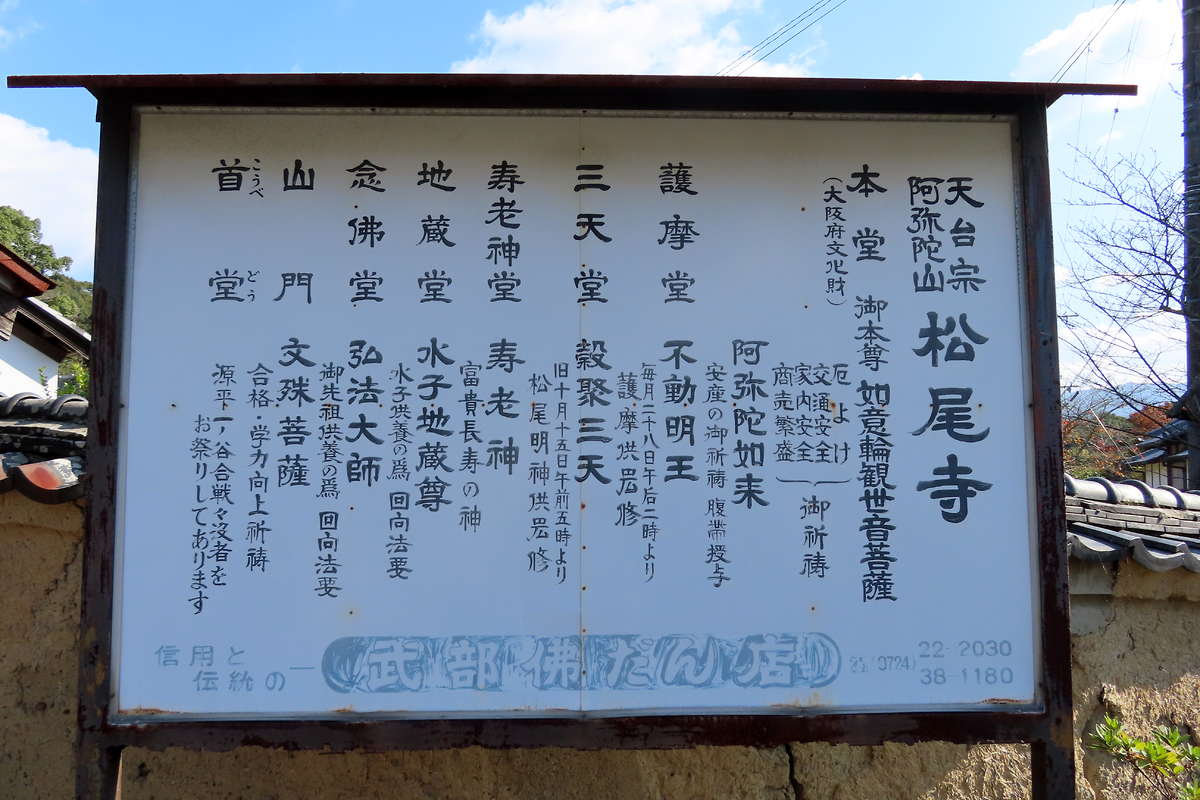 天台宗
阿弥陀山
松尾寺
本堂
(大阪府文化財)
御本尊 如意輪観世音菩薩
厄よけ
交通安全
家内安全
商売繁盛
御祈祷
阿弥陀如来
安産の御祈祷 腹帯授与
護摩堂 不動明王
毎月二十八日午后二時より
護摩供修
三天堂 穀聚三天
旧十月十五日午前五時より
松尾明神供修
寿老神堂 寿老神
富貴長寿の神
地蔵堂 水子地蔵尊
水子供養の為 回向法要
念佛堂 弘法大師
御先祖供養の為 回向法要
山門 文殊菩薩
合格・学力向上祈祷
首堂
こうべ
どう
源平一ノ谷合戦々没者を
お祭りしてあります
信用と
伝統の
武部佛だん店
(0724)
22-2030
38-1180